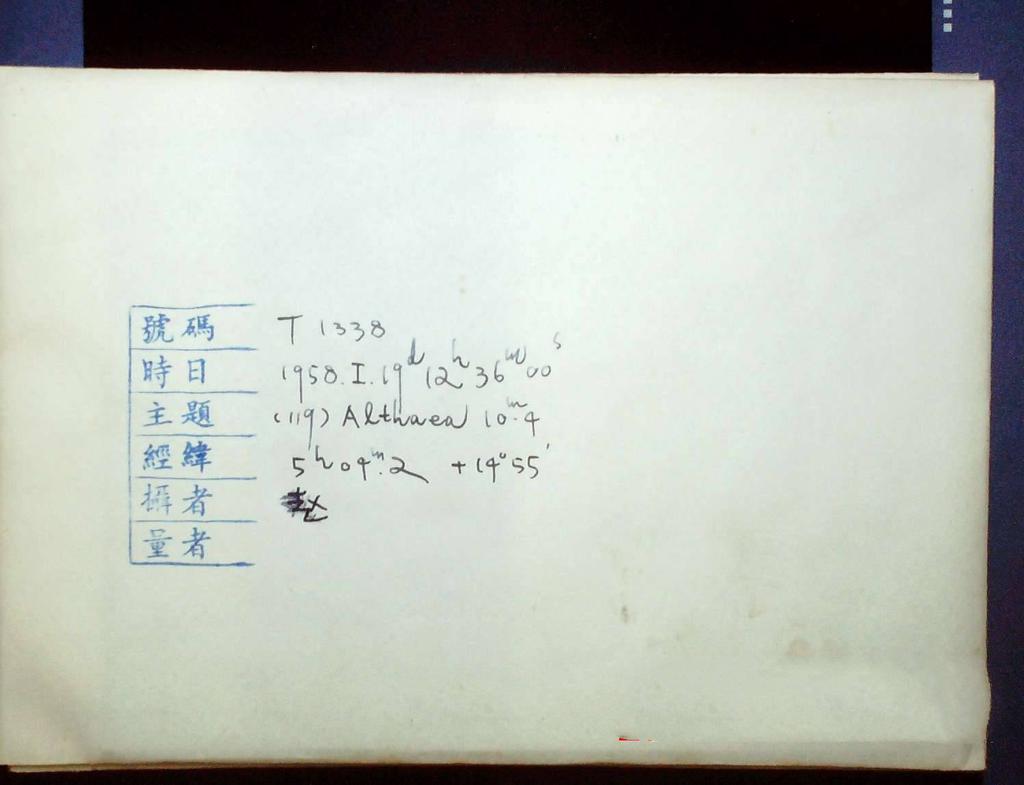 號碼 T 1338
時日 1958.I.19ᵈ12ʰ36ᵐ00ˢ
主題 (119) Althaea 10ᵐ.4
經緯 5ʰ04ᵐ.2 +14°55'
攝者
量者